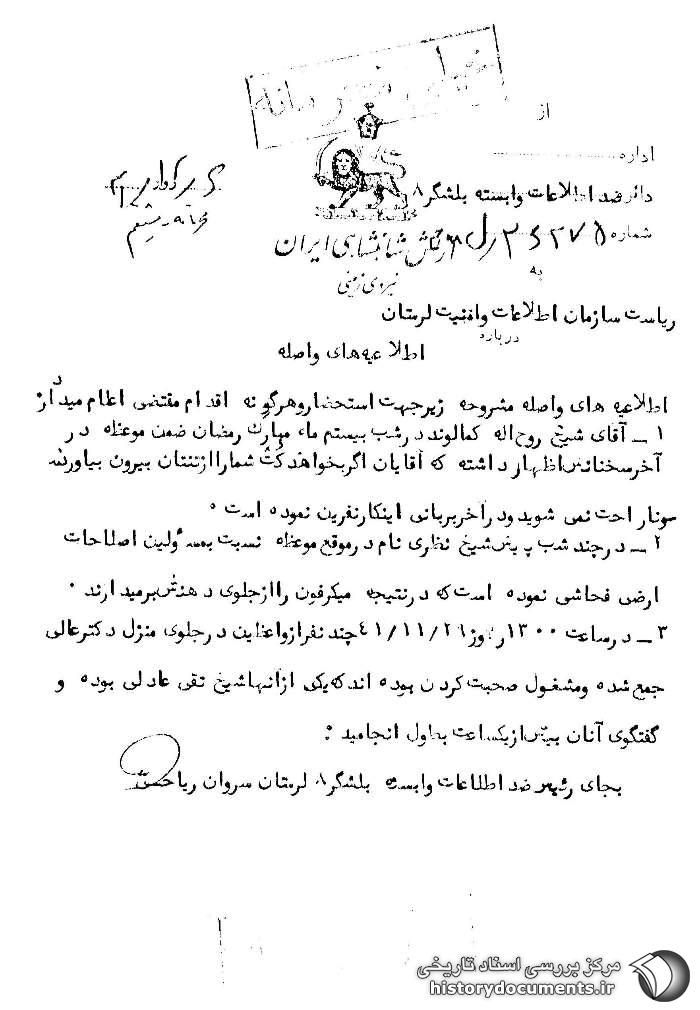 خیلی محرمانه
از
اداره
دائره ضد اطلاعات وابسته بلشگر ۸
شماره
ارتش شاهنشاهی ایران
نیروی زمینی
به
ریاست سازمان اطلاعات وامنیت لرستان
درباره
اطلاعیه های واصله
اطلاعیه های واصله مشروحه زیرجهت استحضاروهرگونه اقدام مقتضی اعلام میدارد
۱ ـ آقای شیخ روح اله کمالوند درشب بیستم ماه مبارک رمضان ضمن موعظه در
آخرسخنانش اظهار داشته که آقایان اگربخواهد کت شماراازتنتان بیرون بیاورند
شوناراحت نمی شوید ودرآخربربانی اینکارنفرین نموده است ۰
۲ ـ درچند شب پیش شیخ نظری نام درموقع موعظه نسبت بمسئولین اصلاحات
ارضی فحاشی نموده است که درنتیجه میکرفون راازجلوی دهنش برمیدارند ۰
۳ ـ درساعت ۱۳۰۰ روز ۴۱/۱۱/۲۹ چند نفرازواعظین درجلوی منزل دکترعالی
جمع شده ومشغول صحبت کردن بوده اند که یکی ازآنهاشیخ تقی عادلی بوده و
گفتگوی آنان بیش ازیکساعت بطول انجامید ۰
بجای رئیس ضد اطلاعات وابسته بلشگر ۸ لرستان سروان
مرکز بررسی اسناد تاریخی
historydocuments.ir